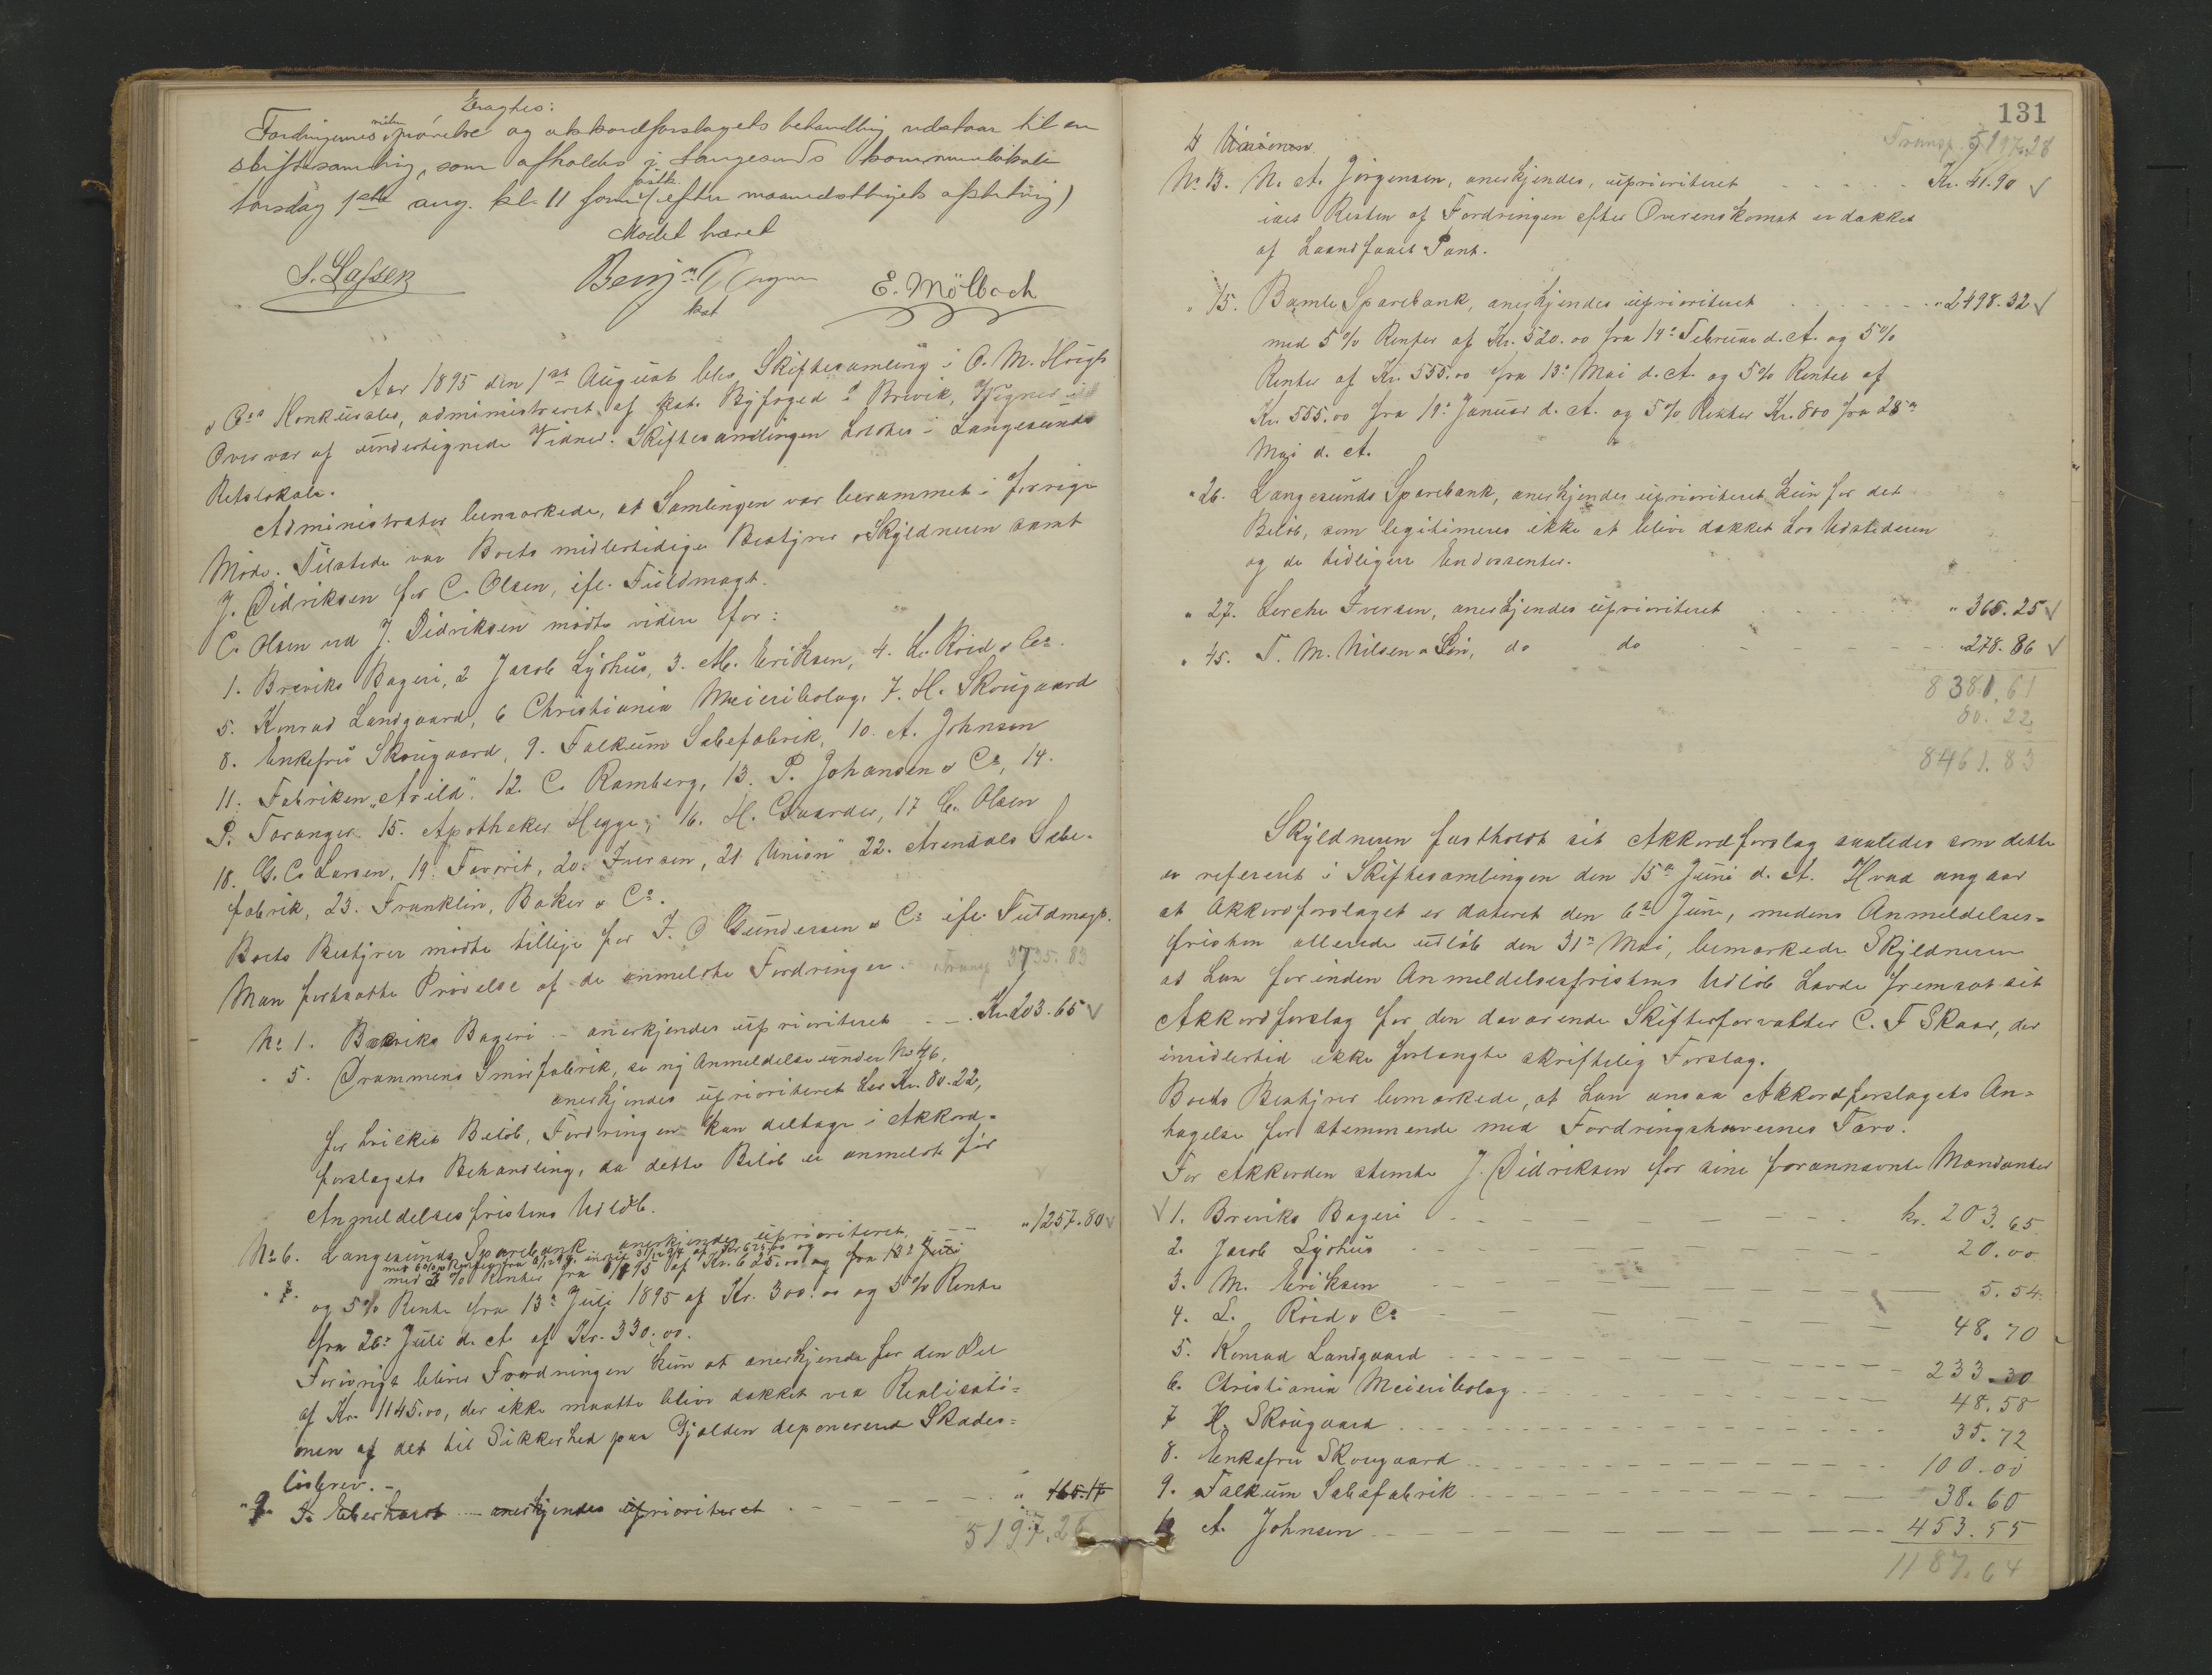 Eragtes:
Fordringernes videre prøvelse og akkordforslagets behandling udstaar til en
skiftesamling, som afholdes i Langesunds kommunelokale
torsdag 1ste aug. kl. 11 form. (efter maanedsthingets afslutning)
Mødet hævet
S. Lassen
Benj. Wegner
kst
E. Mölbach
Aar 1895 den 1ste August blev Skiftesamling i O. M. Höigh
& Co Konkursbo, administreret af kst. Byfoged i Brevik, Wegner i
Overvær af undertegnede Vidner. Skiftesamlingen holdtes i Langesunds
Retslokale.
Administrator bemærkede, at Samlingen var berammet i forrige
Møde. Tilstede var Boets midlertidige Bestyrer & Skyldneren samt
J. Didriksen for C. Olsen, ifl. Fuldmagt.
C. Olsen ved J. Didriksen mødte videre for:
1. Breviks Bageri, 2 Jacob Lydhus, 3. M. Eriksen, 4. L. Röed & Co.
5. Konrad Landgaard, 6 Christiania Meieribolag. 7. H. Skougaard
8. Enkefru Skougaard, 9. Falkum Sæbefabrik, 10. A. Johnsen
11. Fabriken "Arild". 12. C. Ramberg, 13. P. Johansen & Co, 14.
P. Taranger. 15. Apotheker Hegge, 16. H. Gaarder, 17 C. Olsen
18. G. C. Larsen, 19. Favorit, 20. Iversen, 21 "Union" 22. Arendals Sæbe-
fabrik, 23. Franklin, Baker & Co.
Boets Bestyrer mødte tillige for J. O Gundersen & Co ifl. Fuldmagt.
Man fortsatte Prøvelse af de anmeldte Fordringer. Transp 3735.83
No 1. Breviks Bageri - anerkjendes uprioriteret - - Kr. 203.65
" 5. Drammens Smörfabrik, se ny Anmeldelse under No 46,
anerkjendes uprioriteret her Kr. 80.22,
for hvilket Beløb, Fordringen kan deltage i Akkord-
forslagets Behandling, da dette Beløb er anmeldt før
Anmeldelsesfristens Udløb.
No 6. Langesunds Sparebank anerkjendes uprioriteret, - - " 1257.80
og 5% Rente fra 13de Juli 1895 af Kr. 300.00 og 5% Rente
fra 26de Juli d. A. af Kr. 330.00.
Forövrigt bliver Fordringen kun at anerkjende for den Del
af Kr. 1145.00, der ikke maatte blive dækket ved Realisati-
onen af det til Sikkerhed paa Gjælden deponerede Skades-
løsbrev. -
" 9. F. Eberhardt - anerkjendes uprioriteret - - - " 165.17
5197.28
131
Transp. 5197.28
No 13. N. A. Jörgensen, anerkjendes, uprioriteret - - - Kr. 41.90
idet Resten af Fordringen efter Overenskomst er dækket
af haandfaaet Pant.
" 15. Bamle Sparebank, anerkjendes uprioriteret - - - " 2498.32
med 5% Renter af Kr. 520.00 fra 14de Februar d. A. og 5%
Renter af Kr. 555.00 fra 13de Mai d. A. og 5% Renter af
Kr. 555.00 fra 19de Januar d. A. og 5% Renter Kr. 800 fra 28de
Mai d. A.
" 26. Langesunds Sparebank, anerkjendes uprioriteret kun for det
Beløb, som legitimeres ikke at blive dækket hos Udstederen
og de tidligere Endossenter.
" 27. Lerche Iversen, anerkjendes uprioriteret - - - " 365.25
" 45. T. M. Nilsen & Sön, do do - - - " 278.86
8381.61
80.22
8461.83
Skyldneren fastholdt sit Akkordforslag saaledes som dette
er refereret i Skiftesamlingen den 15de Juni d. A. Hvad angaar
at Akkordforslaget er dateret den 6te Juni, medens Anmeldelses-
fristen allerede udløb den 31te Mai, bemærkede Skyldneren
at han forinden Anmeldelsesfristens Udløb havde fremsat sit
Akkordforslag for den daværende Skifteforvalter C. F Skaar, der
imidlertid ikke forlangte skriftelig Forslag.
Boets Bestyrer bemærkede, at han ansaa Akkordforslagets An-
tagelse for stemmende med Fordringshavernes Tarv.
For Akkorden stemte J. Didriksen for sine forannævnte Mandanter
1. Breviks Bageri - - - kr. 203.65
2. Jacob Lydhus - - - 20.00
3. M. Eriksen - - - 5.54.
4. L. Röed & Co - - - 48.70
5. Konrad Landgaard - - - 233.30
6. Christiania Meieribolag - - - 48.58
7 H. Skougaard - - - 35.72
8. Enkefru Skougaard - - - 100.00
9. Falkum Sæbefabrik - - - 38.60
10 A. Johnsen - - - 453.55
1187.64